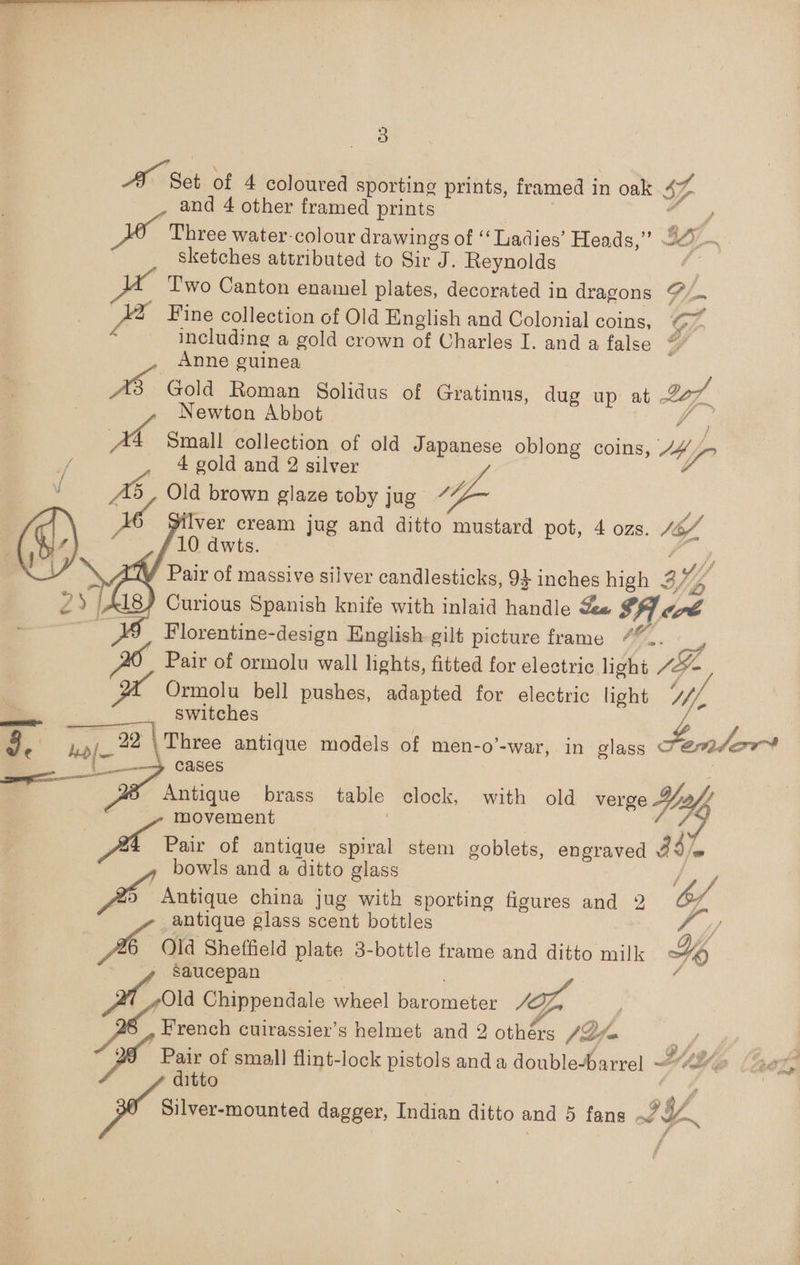 3
9 Set of 4 coloured sporting prints, framed in oak
and 4 other framed prints
10 Three water-colour drawings of “Ladies’ Heads,”
sketches attributed to Sir J. Reynolds
11 Two Canton enamel plates, decorated in dragons
12 Fine collection of Old English and Colonial coins,
including a gold crown of Charles I. and a false
Anne guinea
13 Gold Roman Solidus of Gratinus, dug up at
Newton Abbot
14 Small collection of old Japanese oblong coins,
4 gold and 2 silver
15 Old brown glaze toby jug
16 Silver cream jug and ditto mustard pot, 4 ozs.
10 dwts.
17 Pair of massive silver candlesticks, 9½ inches high
18 Curious Spanish knife with inlaid handle
19 Florentine-design English gilt picture frame
20 Pair of ormolu wall lights, fitted for electric light
21 Ormolu bell pushes, adapted for electric light
switches
22 Three antique models of men-o’-war, in glass
cases
23 Antique brass table clock, with old verge
movement
24 Pair of antique spiral stem goblets, engraved
bowls and a ditto glass
25 Antique china jug with sporting figures and 2
antique glass scent bottles
26 Old Sheffield plate 3-bottle frame and ditto milk
saucepan
27 Old Chippendale wheel barometer
28 French cuirassier’s helmet and 2 others
29 Pair of small flint-lock pistols and a double-barrel
ditto
30 Silver-mounted dagger, Indian ditto and 5 fans